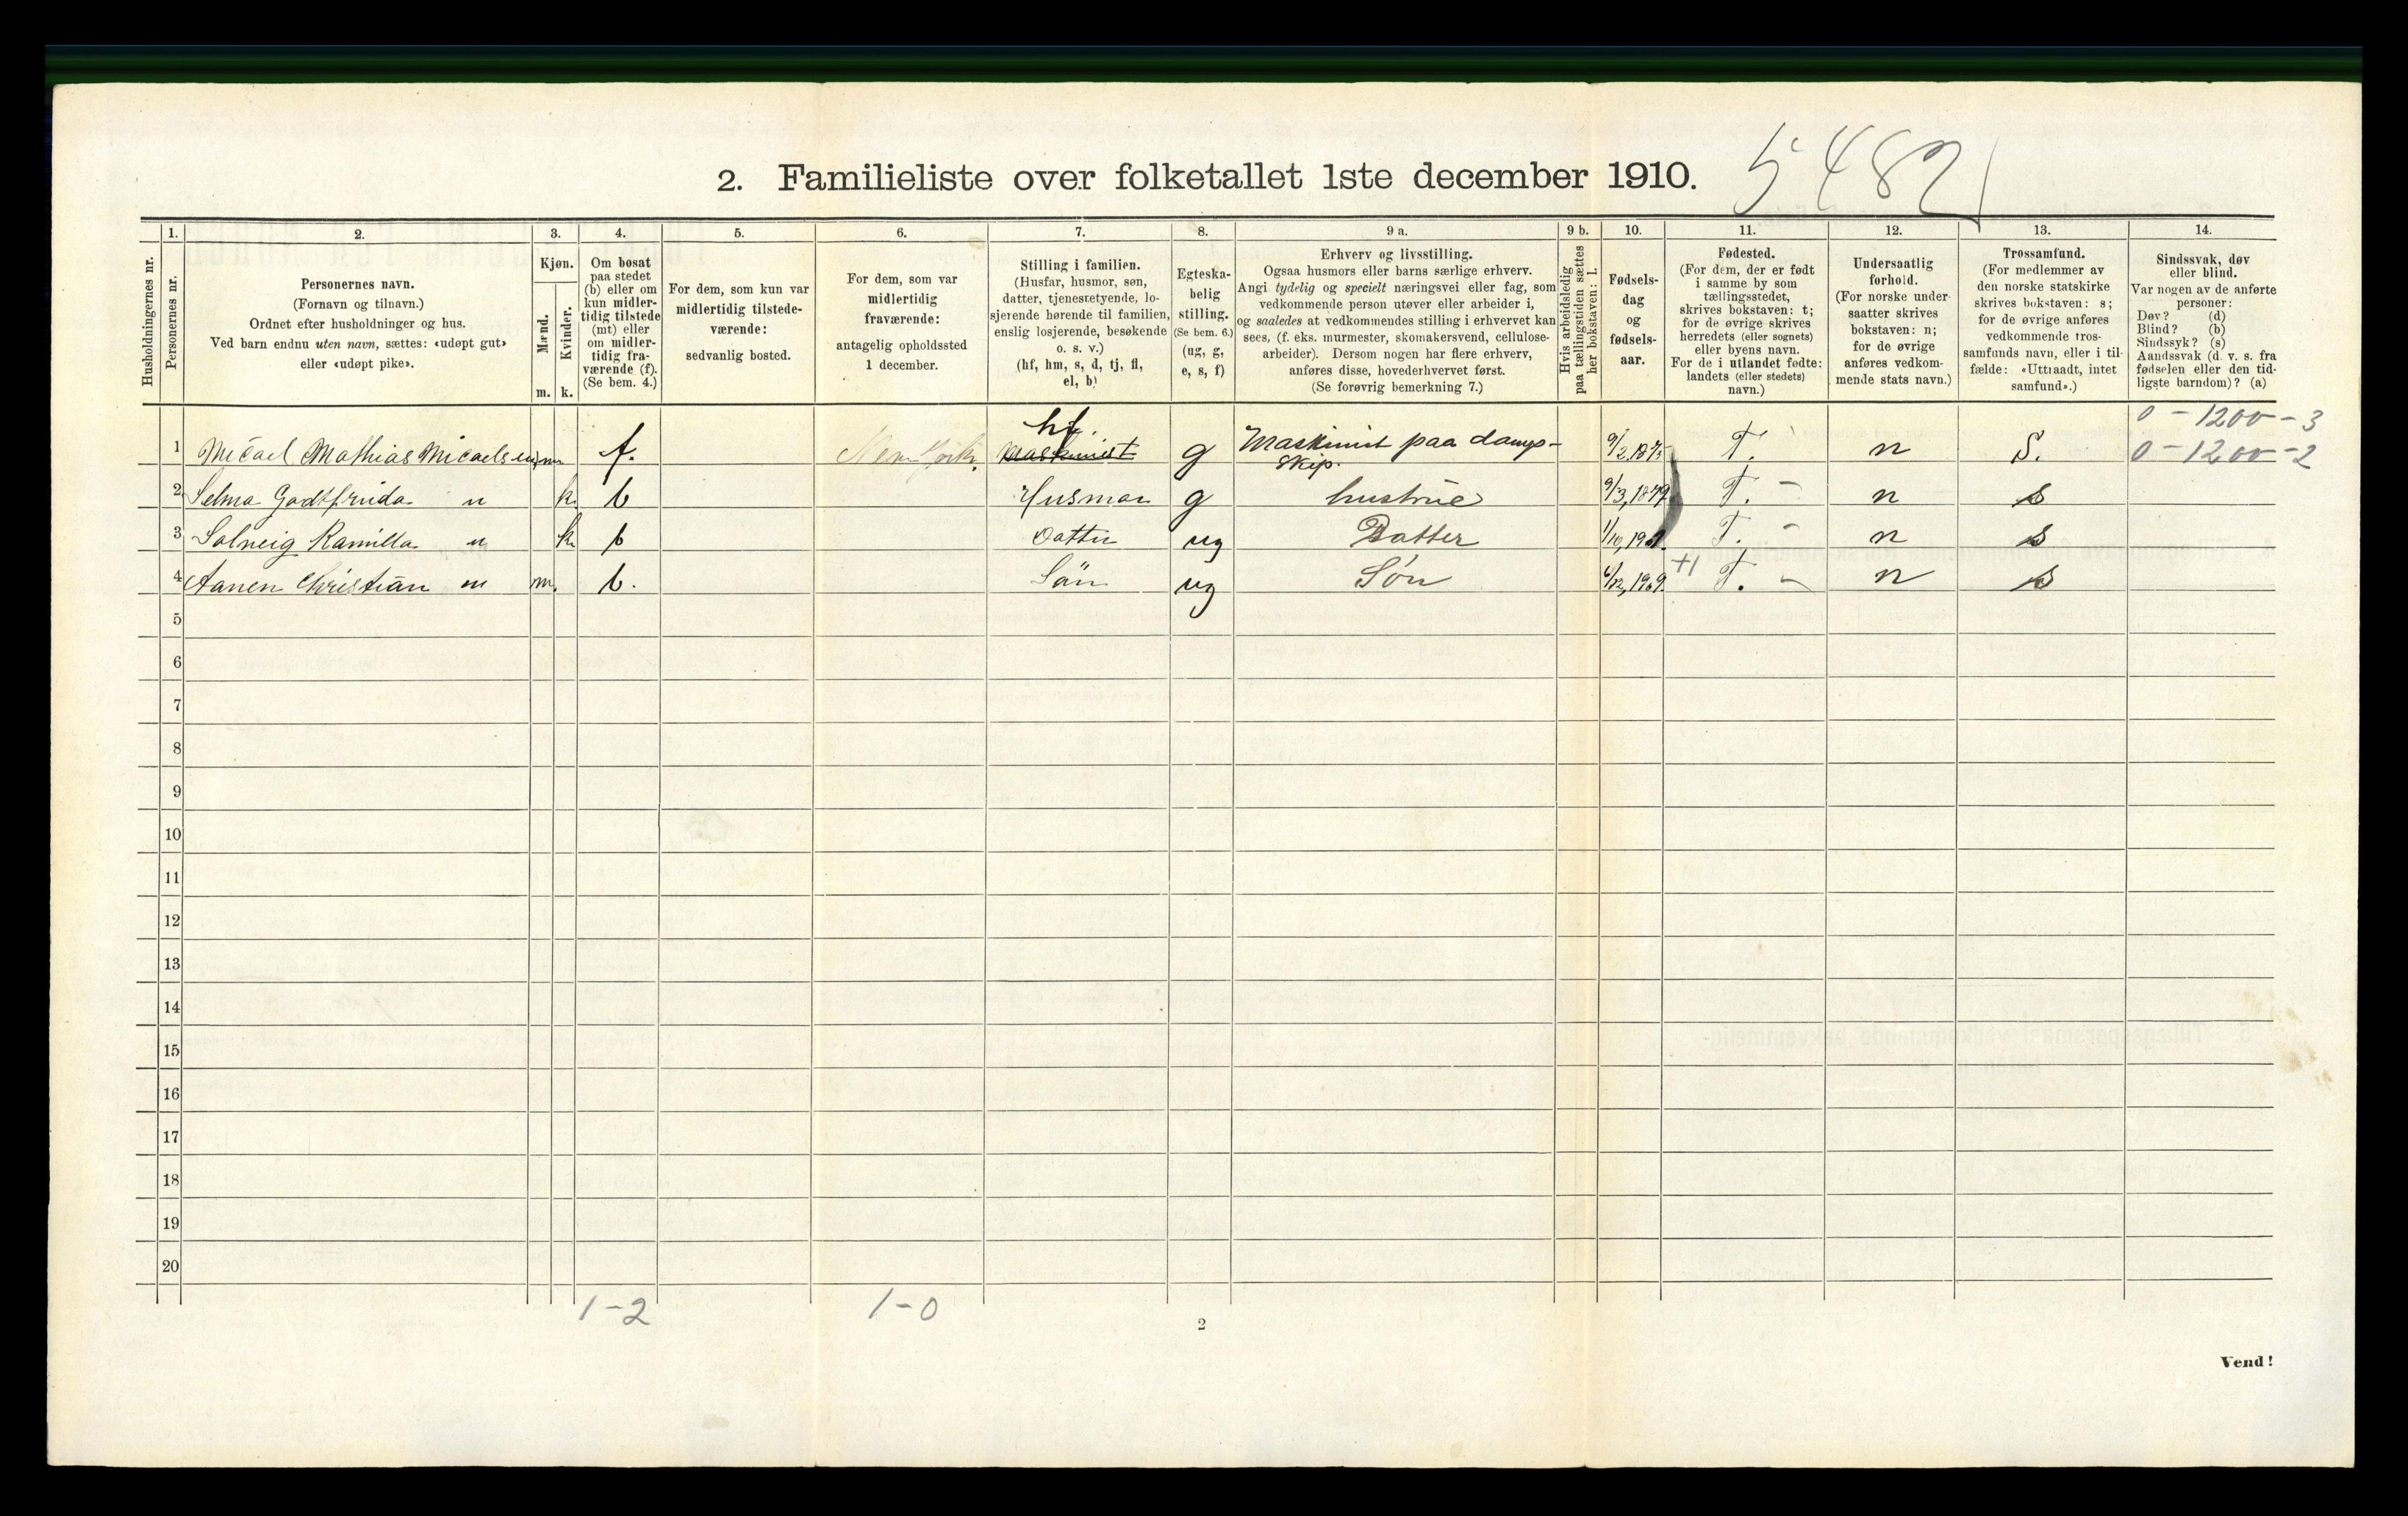 5482
2. Familieliste over folketallet 1ste december 1910.
Husholdningernes nr.
1. Personernes nr.
2. Personernes navn.
(Fornavn og tilnavn.)
Ordnet efter husholdninger og hus.
Ved barn endnu uten navn, sættes: «udøpt gut»
eller «udøpt pike».
3. Kjøn.
Mænd. m.
Kvinder. k.
4. Om bosat
paa stedet
(b) eller om
kun midler-
tidig tilstede
(mt) eller
om midler-
tidig fra-
værende (f).
(Se bem. 4.)
5. For dem, som kun var
midlertidig tilstede-
værende:
sedvanlig bosted.
6. For dem, som var
midlertidig
fraværende:
antagelig opholdssted
1 december.
7. Stilling i familien.
(Husfar, husmor, søn,
datter, tjenestetyende, lo-
sjerende hørende til familien,
enslig losjerende, besøkende
o. s. v.)
(hf, hm, s, d, tj, fl,
el, b)
8. Egteska-
belig
stilling.
(Se bem. 6.)
(ug, g,
e, s, f)
9 a. Erhverv og livsstilling.
Ogsaa husmors eller barns særlige erhverv.
Angi tydelig og specielt næringsvei eller fag, som
vedkommende person utøver eller arbeider i,
og saaledes at vedkommendes stilling i erhvervet kan
sees, (f. eks. murmester, skomakersvend, cellulose-
arbeider). Dersom nogen har flere erhverv,
anføres disse, hovederhvervet først.
(Se forøvrig bemerkning 7.)
9 b. Hvis arbeidsledig
paa tællingstiden sættes
her bokstaven: l.
10. Fødsels-
dag
og
fødsels-
aar.
11. Fødested.
(For dem, der er født
i samme by som
tællingsstedet,
skrives bokstaven: t;
for de øvrige skrives
herredets (eller sognets)
eller byens navn.
For de i utlandet fødte:
landets (eller stedets)
navn.)
12. Undersaatlig
forhold.
(For norske under-
saatter skrives
bokstaven: n;
for de øvrige
anføres vedkom-
mende stats navn.)
13. Trossamfund.
(For medlemmer av
den norske statskirke
skrives bokstaven: s;
for de øvrige anføres
vedkommende tros-
samfunds navn, eller i til-
fælde: «Uttraadt, intet
samfund».)
14. Sindssvak, døv
eller blind.
Var nogen av de anførte
personer:
Døv? (d)
Blind? (b)
Sindssyk? (s)
Aandssvak (d. v. s. fra
fødselen eller den tid-
ligste barndom)? (a)
0 - 1200 - 3
1 Micael Mathias Micaelsen m. f. New York. hf. maskinist g Maskinist paa damp-
skip. 9/2, 1875 T. n S. 0 - 1200 - 2
2 Selma Godtfrida " k. b Husmor g hustrue 9/3, 1879 T. - n s
3 Solveig Kamilla " k. b datter ug Datter T. - n s
4 Aanen Christian " m. b. Sön ug Søn 6/12, 1909. +1 T. - n s
5
6
7
8
9
10
11
12
13
14
15
16
17
18
19
20
1-2 1-0
2
Vend!